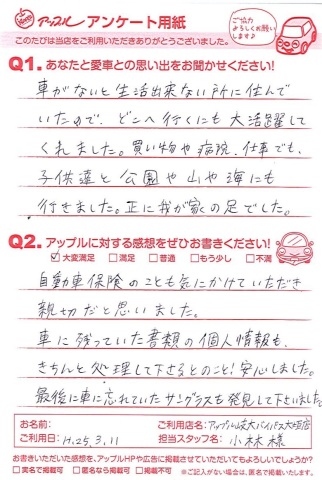 アップル アンケート用紙
ご協力
よろしくお願い
します♪
このたびは当店をご利用いただきありがとうございました。
Q1. あなたと愛車との思い出をお聞かせください!
車がないと生活出来ない所に住んで
いたので、どこへ行くにも大活躍して
くれました。買い物や病院、仕事でも、
子供達と公園や山や海にも
行きました。正に我が家の足でした。
Q2. アップルに対する感想をぜひお書きください!
☑大変満足 □満足 □普通 □もう少し □不満
自動車保険のことも気にかけていただき
親切だと思いました。
車に残っていた書類の個人情報も、
きちんと処理して下さるとのこと!安心しました。
最後に車に忘れていたサングラスも発見して下さいました。
お名前: ご利用店名:アップル岐大バイパス大垣店
ご利用日:H.25.3.11 担当スタッフ名:小林様
お書きいただいた感想を、アップルHPや広告に掲載させていただいてもよろしいでしょうか?
□実名で掲載可 □匿名なら掲載可 □掲載不可 ※ご記入がない場合は、匿名で掲載いたします。